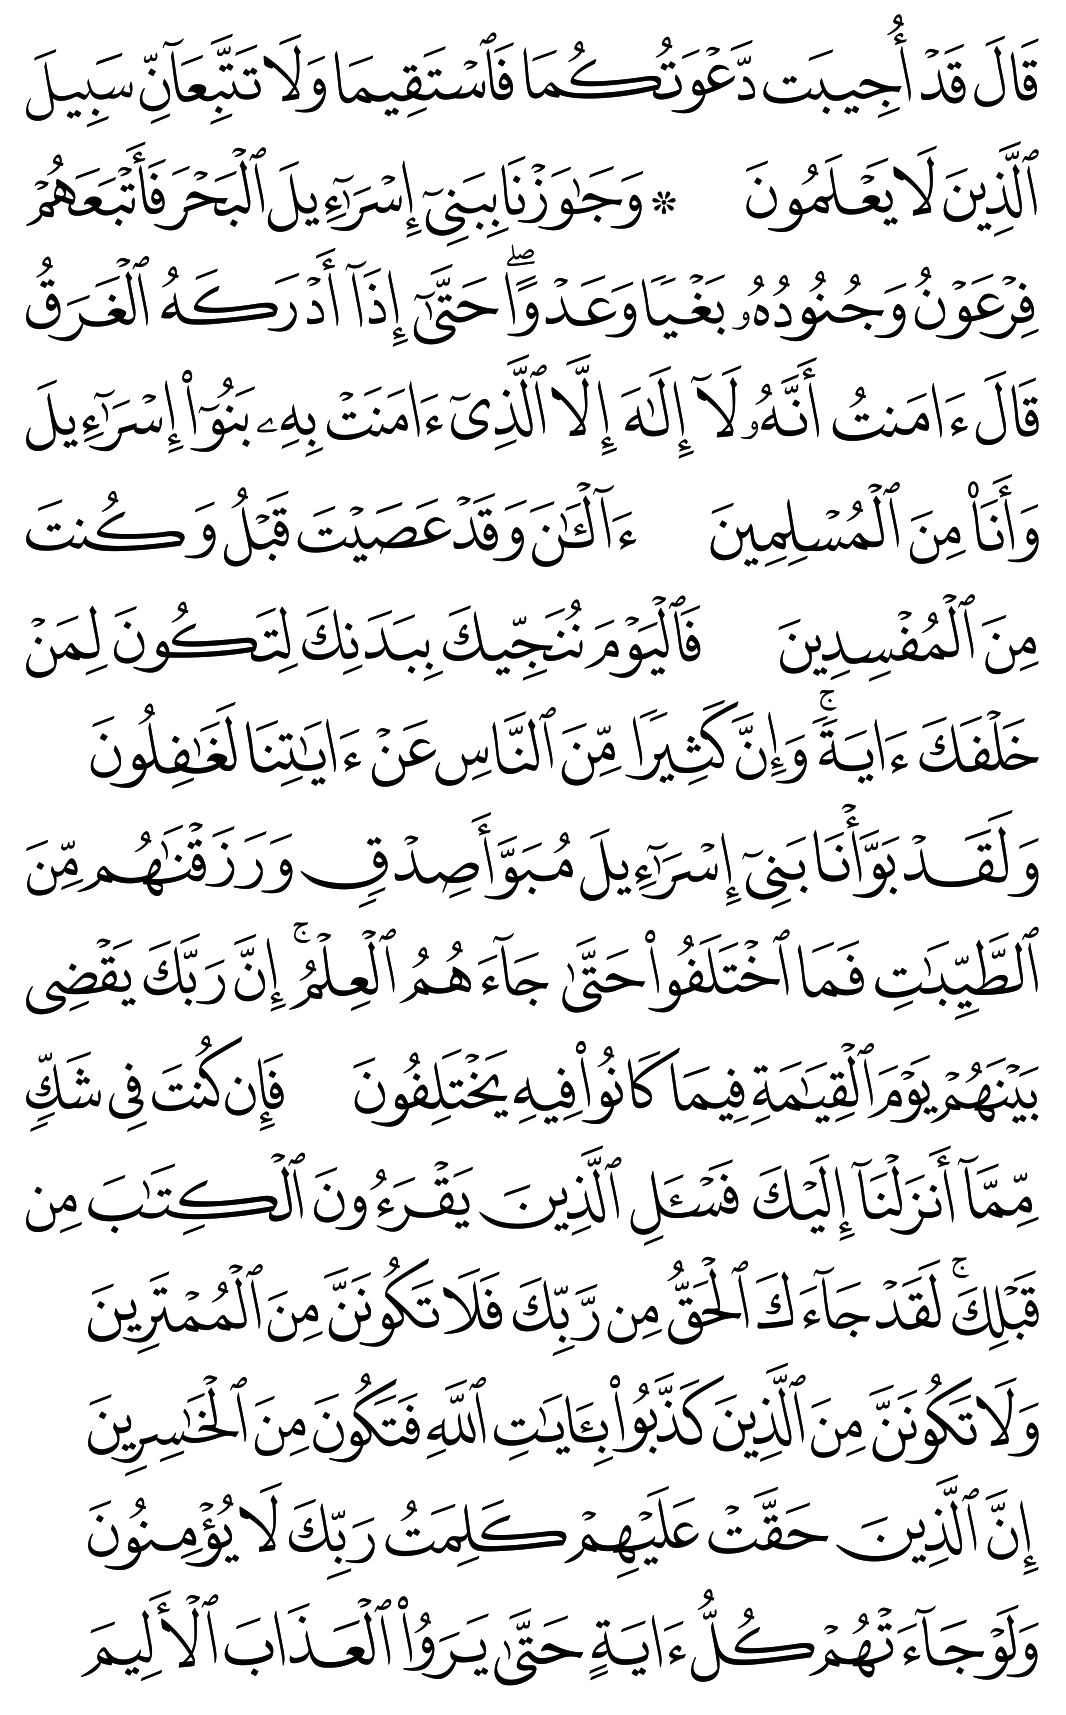 قَالَ قَدۡ أُجِيبَت دَّعۡوَتُكُمَا فَٱسۡتَقِيمَا وَلَا تَتَّبِعَآنِّ سَبِيلَ
ٱلَّذِينَ لَا يَعۡلَمُونَ * وَجَٰوَزۡنَا بِبَنِيٓ إِسۡرَٰٓءِيلَ ٱلۡبَحۡرَ فَأَتۡبَعَهُمۡ
فِرۡعَوۡنُ وَجُنُودُهُۥ بَغۡيٗا وَعَدۡوًاۖ حَتَّىٰٓ إِذَآ أَدۡرَكَهُ ٱلۡغَرَقُ
قَالَ ءَامَنتُ أَنَّهُۥ لَآ إِلَٰهَ إِلَّا ٱلَّذِيٓ ءَامَنَتۡ بِهِۦ بَنُوٓاْ إِسۡرَٰٓءِيلَ
وَأَنَا۠ مِنَ ٱلۡمُسۡلِمِينَ ءَآلۡـَٰٔنَ وَقَدۡ عَصَيۡتَ قَبۡلُ وَكُنتَ
مِنَ ٱلۡمُفۡسِدِينَ فَٱلۡيَوۡمَ نُنَجِّيكَ بِبَدَنِكَ لِتَكُونَ لِمَنۡ
خَلۡفَكَ ءَايَةٗۚ وَإِنَّ كَثِيرٗا مِّنَ ٱلنَّاسِ عَنۡ ءَايَٰتِنَا لَغَٰفِلُونَ
وَلَقَدۡ بَوَّأۡنَا بَنِيٓ إِسۡرَٰٓءِيلَ مُبَوَّأَ صِدۡقٖ وَرَزَقۡنَٰهُم مِّنَ
ٱلطَّيِّبَٰتِ فَمَا ٱخۡتَلَفُواْ حَتَّىٰ جَآءَهُمُ ٱلۡعِلۡمُۚ إِنَّ رَبَّكَ يَقۡضِي
بَيۡنَهُمۡ يَوۡمَ ٱلۡقِيَٰمَةِ فِيمَا كَانُواْ فِيهِ يَخۡتَلِفُونَ فَإِن كُنتَ فِي شَكّٖ
مِّمَّآ أَنزَلۡنَآ إِلَيۡكَ فَسۡـَٔلِ ٱلَّذِينَ يَقۡرَءُونَ ٱلۡكِتَٰبَ مِن
قَبۡلِكَۚ لَقَدۡ جَآءَكَ ٱلۡحَقُّ مِن رَّبِّكَ فَلَا تَكُونَنَّ مِنَ ٱلۡمُمۡتَرِينَ
وَلَا تَكُونَنَّ مِنَ ٱلَّذِينَ كَذَّبُواْ بِـَٔايَٰتِ ٱللَّهِ فَتَكُونَ مِنَ ٱلۡخَٰسِرِينَ
إِنَّ ٱلَّذِينَ حَقَّتۡ عَلَيۡهِمۡ كَلِمَتُ رَبِّكَ لَا يُؤۡمِنُونَ
وَلَوۡ جَآءَتۡهُمۡ كُلُّ ءَايَةٍ حَتَّىٰ يَرَوُاْ ٱلۡعَذَابَ ٱلۡأَلِيمَ